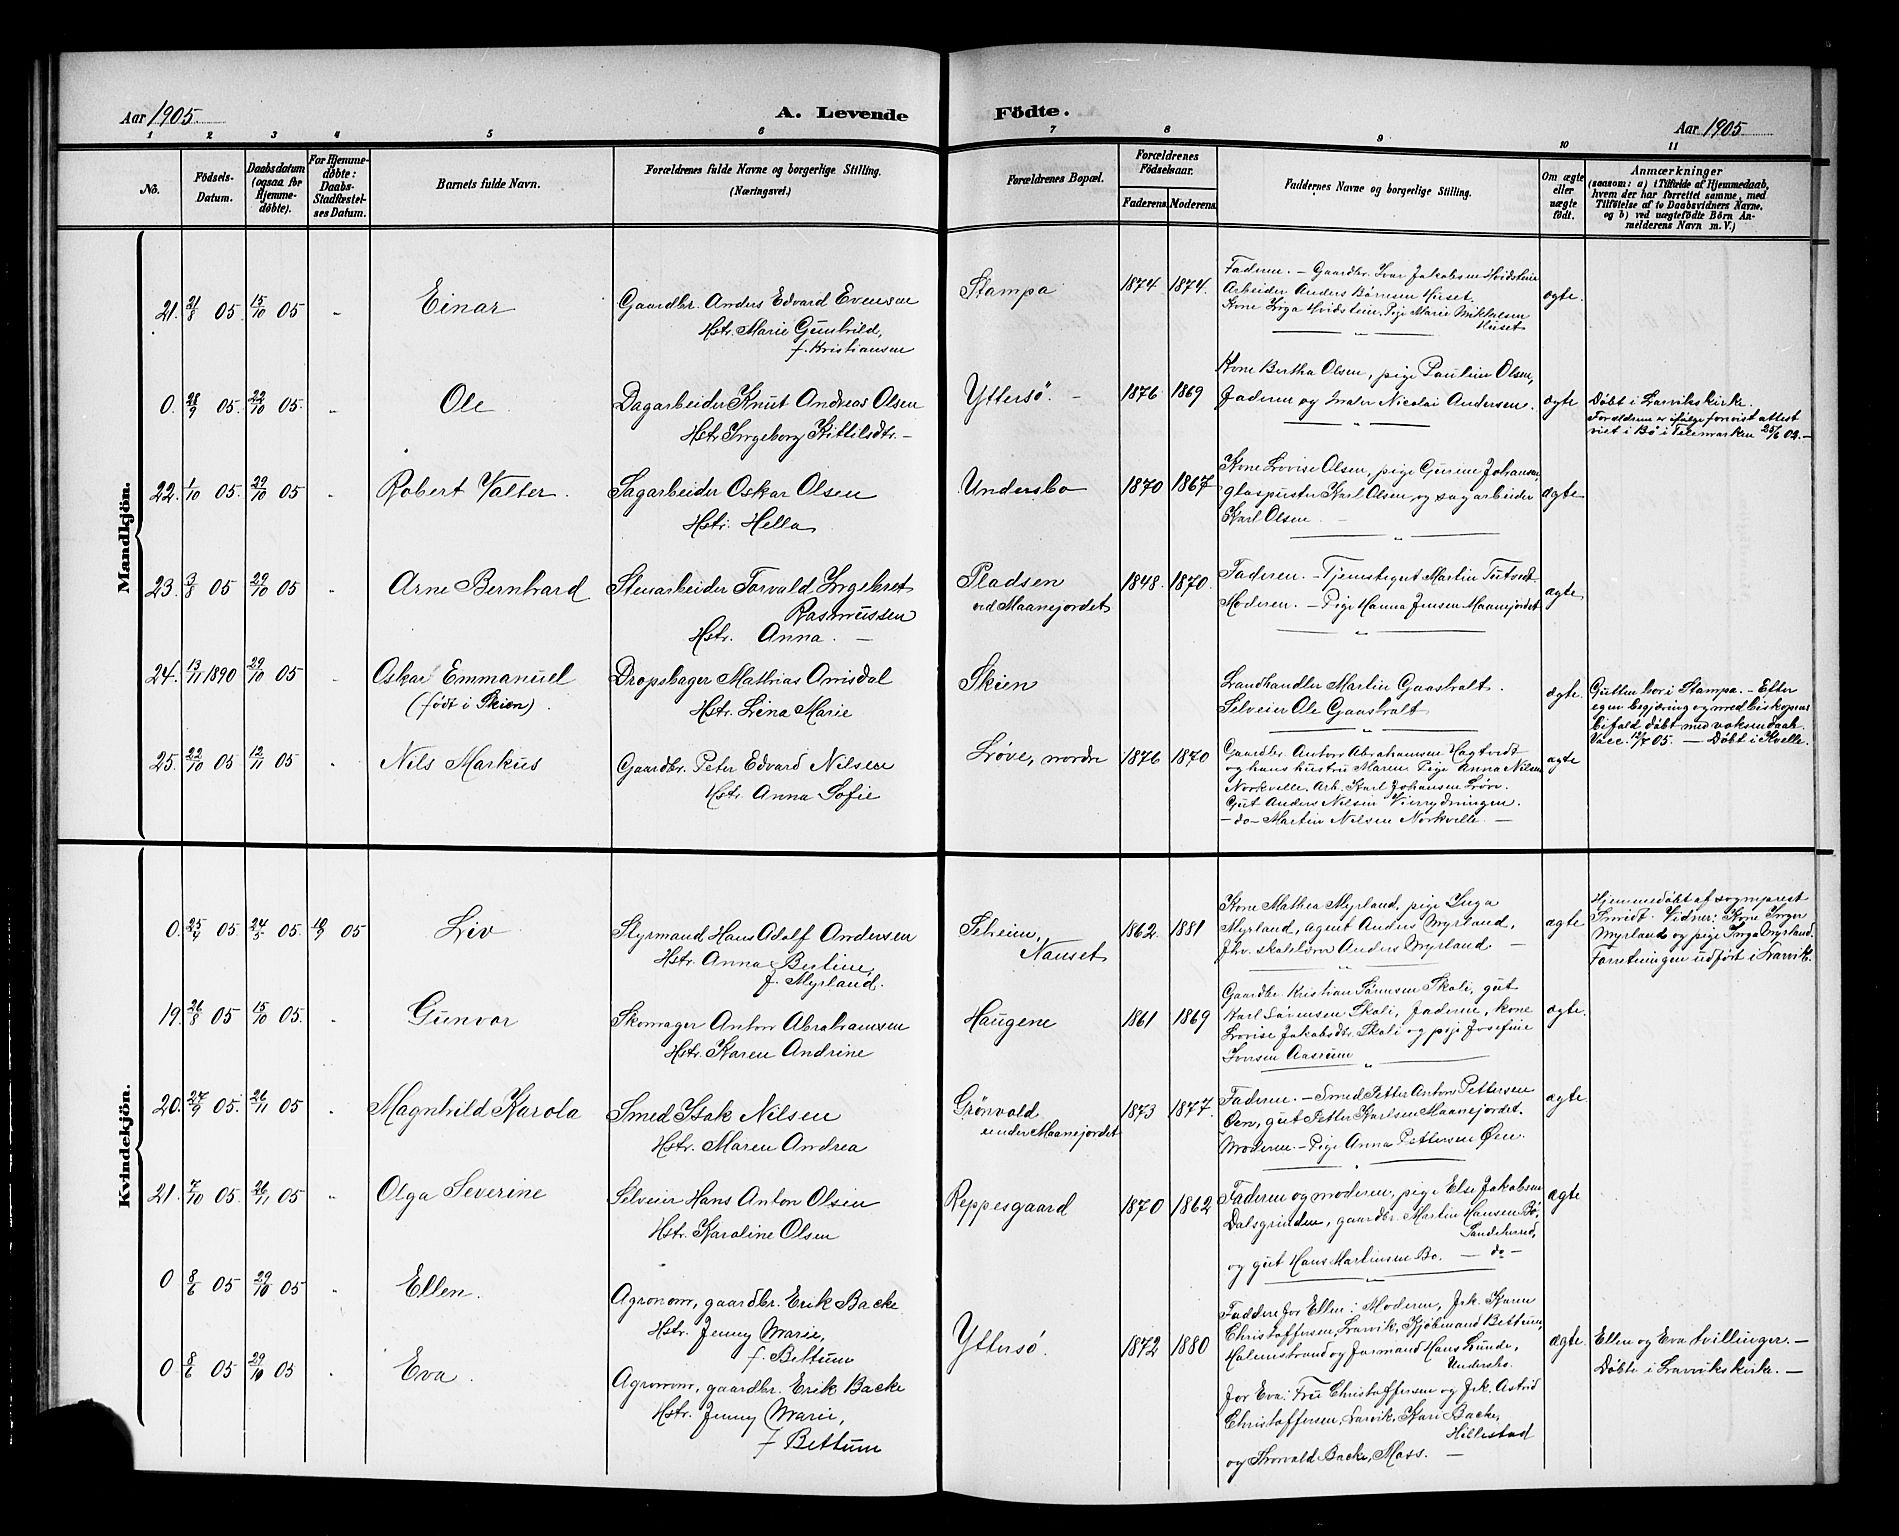 Aar 1905.
A. Levende
Födte.
Aar 1905
1 2 3 4 5 6 7 8 9 10 11
No.
Fødsels-
Datum.
Daabsdatum
(ogsaa for
Hjemme-
döbte).
For Hjemme-
döbte:
Daabs-
Stadfæstel-
ses Datum.
Barnets fulde Navn.
Forældrenes fulde Navne og borgerlige Stilling.
(Næringsvei.)
Forældrenes Bopæl.
Forældrenes
Födselsaar.
Faderens. Moderens.
Faddernes Navne og borgerlige Stilling.
Om ægte
eller
uægte
födt.
Anmærkninger
(saasom: a) i Tilfælde af Hjemmedaab,
hvem der har forrettet samme, med
Tilföielse af to Daabsvidners Navne.
og b) ved uægtefödte Börn An-
melderens Navn m. V.)
Mandkjön.
21. 21/8 05 15/10 05 - Einar
Gaardbr. Anders Edvard Evensen
Hstr. Marie Gunhild,
f. Kristiansen
Stampa 1874. 1874.
Faderen. - Gaardbr. Ivar Jakobsen Hvidstein
Arbeider Anders Børnsen Huset.
Kone Inga Hvidstein. Pige Marie Mikkelsen
Huset
ægte.
0. 28/9 05. 22/10 05. - Ole
Dagarbeider Knut Andreas Olsen
Hstr. Ingeborg Kittilsdtr. -
Yttersö. - 1876 1869
Kone Bertha Olsen, pige Pauline Olsen,
Faderen og maler Nicolai Andersen.
ægte
Döbt i Larvikskirke.
Forældrene er ifølge forevist attest
viet i Bø i Telemarken 25/6 02. -
22. 1/10 05. 29/10 05 - Robert Valter.
Sagarbeider Oskar Olsen
Hstr. Hella
Undersbo 1870 1867
Kone Lovise Olsen, pige Gurine Johansen,
glaspuster Karl Olsen og sagarbeider
Karl Olsen. -
ægte
23. 3/8 05 29/10 05 - Arne Bernhard
Stenarbeider Torvald Ingebret
Rasmussen
Hstr. Anna. -
Pladsen
ved Maanejordet
1848. 1870.
Faderen. - Tjenestegut Martin Tutvedt
Moderen. - Pige Hanna Jensen Maanejordet
ægte
24. 13/11 1890 29/10 05 Oskar Emmanuel
(født i Skien).
Dropsbager Mathias Omsdal
Hstr. Lina Marie
Skien
Landhandler Martin Gaasholt.
Selveier Ole Gaasholt
ægte.
Gutten bor i Stampa. - Efter
egen begjæring og med biskopens
bifald döbt med voksendaab.
Vacc. 12/7 05. - Döbt i Kvelle.
25. 22/10 05 12/11 05 - Nils Markus
Gaardbr. Peter Edvard Nilsen
Hstr. Anna Sofie
Løve, nordre 1876 1870
Gaardbr. Anton Abrahamsen Hagtvedt
og hans hustru Maren. Pige Anna Nilsen
Norkvelle. Arb. Karl Johansen Løve.
Gut Anders Nilsen Vierrydningen.
- do - Martin Nilsen Norkvelle. -
ægte
Kvindekjön.
0. 25/4 05 24/5 05. 10/9 05 Liv
Styrmand Hans Adolf Andersen
Hstr. Anna Bertine,
f. Myrland.
Solheim,
Nanset
1862. 1881
Kone Mathea Myrland, pige Inga
Myrland, agent Anders Myrland,
fhv. skolelærer Anders Myrland. -
ægte
Hjemmedøbt af sogneprest
Smidt. Vidner: Kone Inger
Myrland og pige Inga Myrland.
Forretningen udført i Larvik.
19. 26/8 05 15/10 05. - Gunvor
Skomager Anton Abrahamsen
Hstr. Karen Andrine
Haugene 1861 1869
Gaardbr. Kristian Sørensen Skoli, gut
Karl Sørensen Skoli, Faderen, kone
Lovise Jakobsdtr. Skoli og pige Josefine
Iversen Aasrum
ægte.
20. 27/9 05. 26/11 05 - Magnhild Karola
Smed Isak Nilsen
Hstr. Maren Andrea
Grönvold
under Maanejordet
1873 1877.
Faderen. - Smed Petter Anton Pettersen
Øen, gut Petter Karlsen Maanejordet.
Moderen. - Pige Anna Pettersen Øen.
ægte
21. 7/10 05. 26/11 05 - Olga Severine
Selveier Hans Anton Olsen
Hstr. Karoline Olsen
Reppesgaard 1870 1862
Faderen og moderen, pige Else Jakobsen
Dalsgrinden, gaardbr. Martin Hansen Bø,
Sandeherred,
og gut Hans Martinsen Bø. - do -
ægte
0 8/6 05 29/10 05 - Ellen.
Agronom, gaardbr. Erik Backe
Hstr. Jenny Marie,
f. Bettum
Yttersö. 1872 1880
Faddere for Ellen: Moderen, Frk. Karen
Christoffersen, Larvik, Kjøbmand Bettum,
Holmestrand og formand Hans Lunde,
Undersbo.
ægte.
Ellen og Eva tvillinger. -
Döbte i Larvikskirke. -
0 8/6 05 29/10 05 - Eva.
Agronom, gaardbr. Erik Backe
Hstr. Jenny Marie,
f Bettum
for Eva: Fru Christoffersen og Frk. Astrid
Christoffersen, Larvik, Kari Backe,
Hillestad
og Thorvald Backe, Moss. -